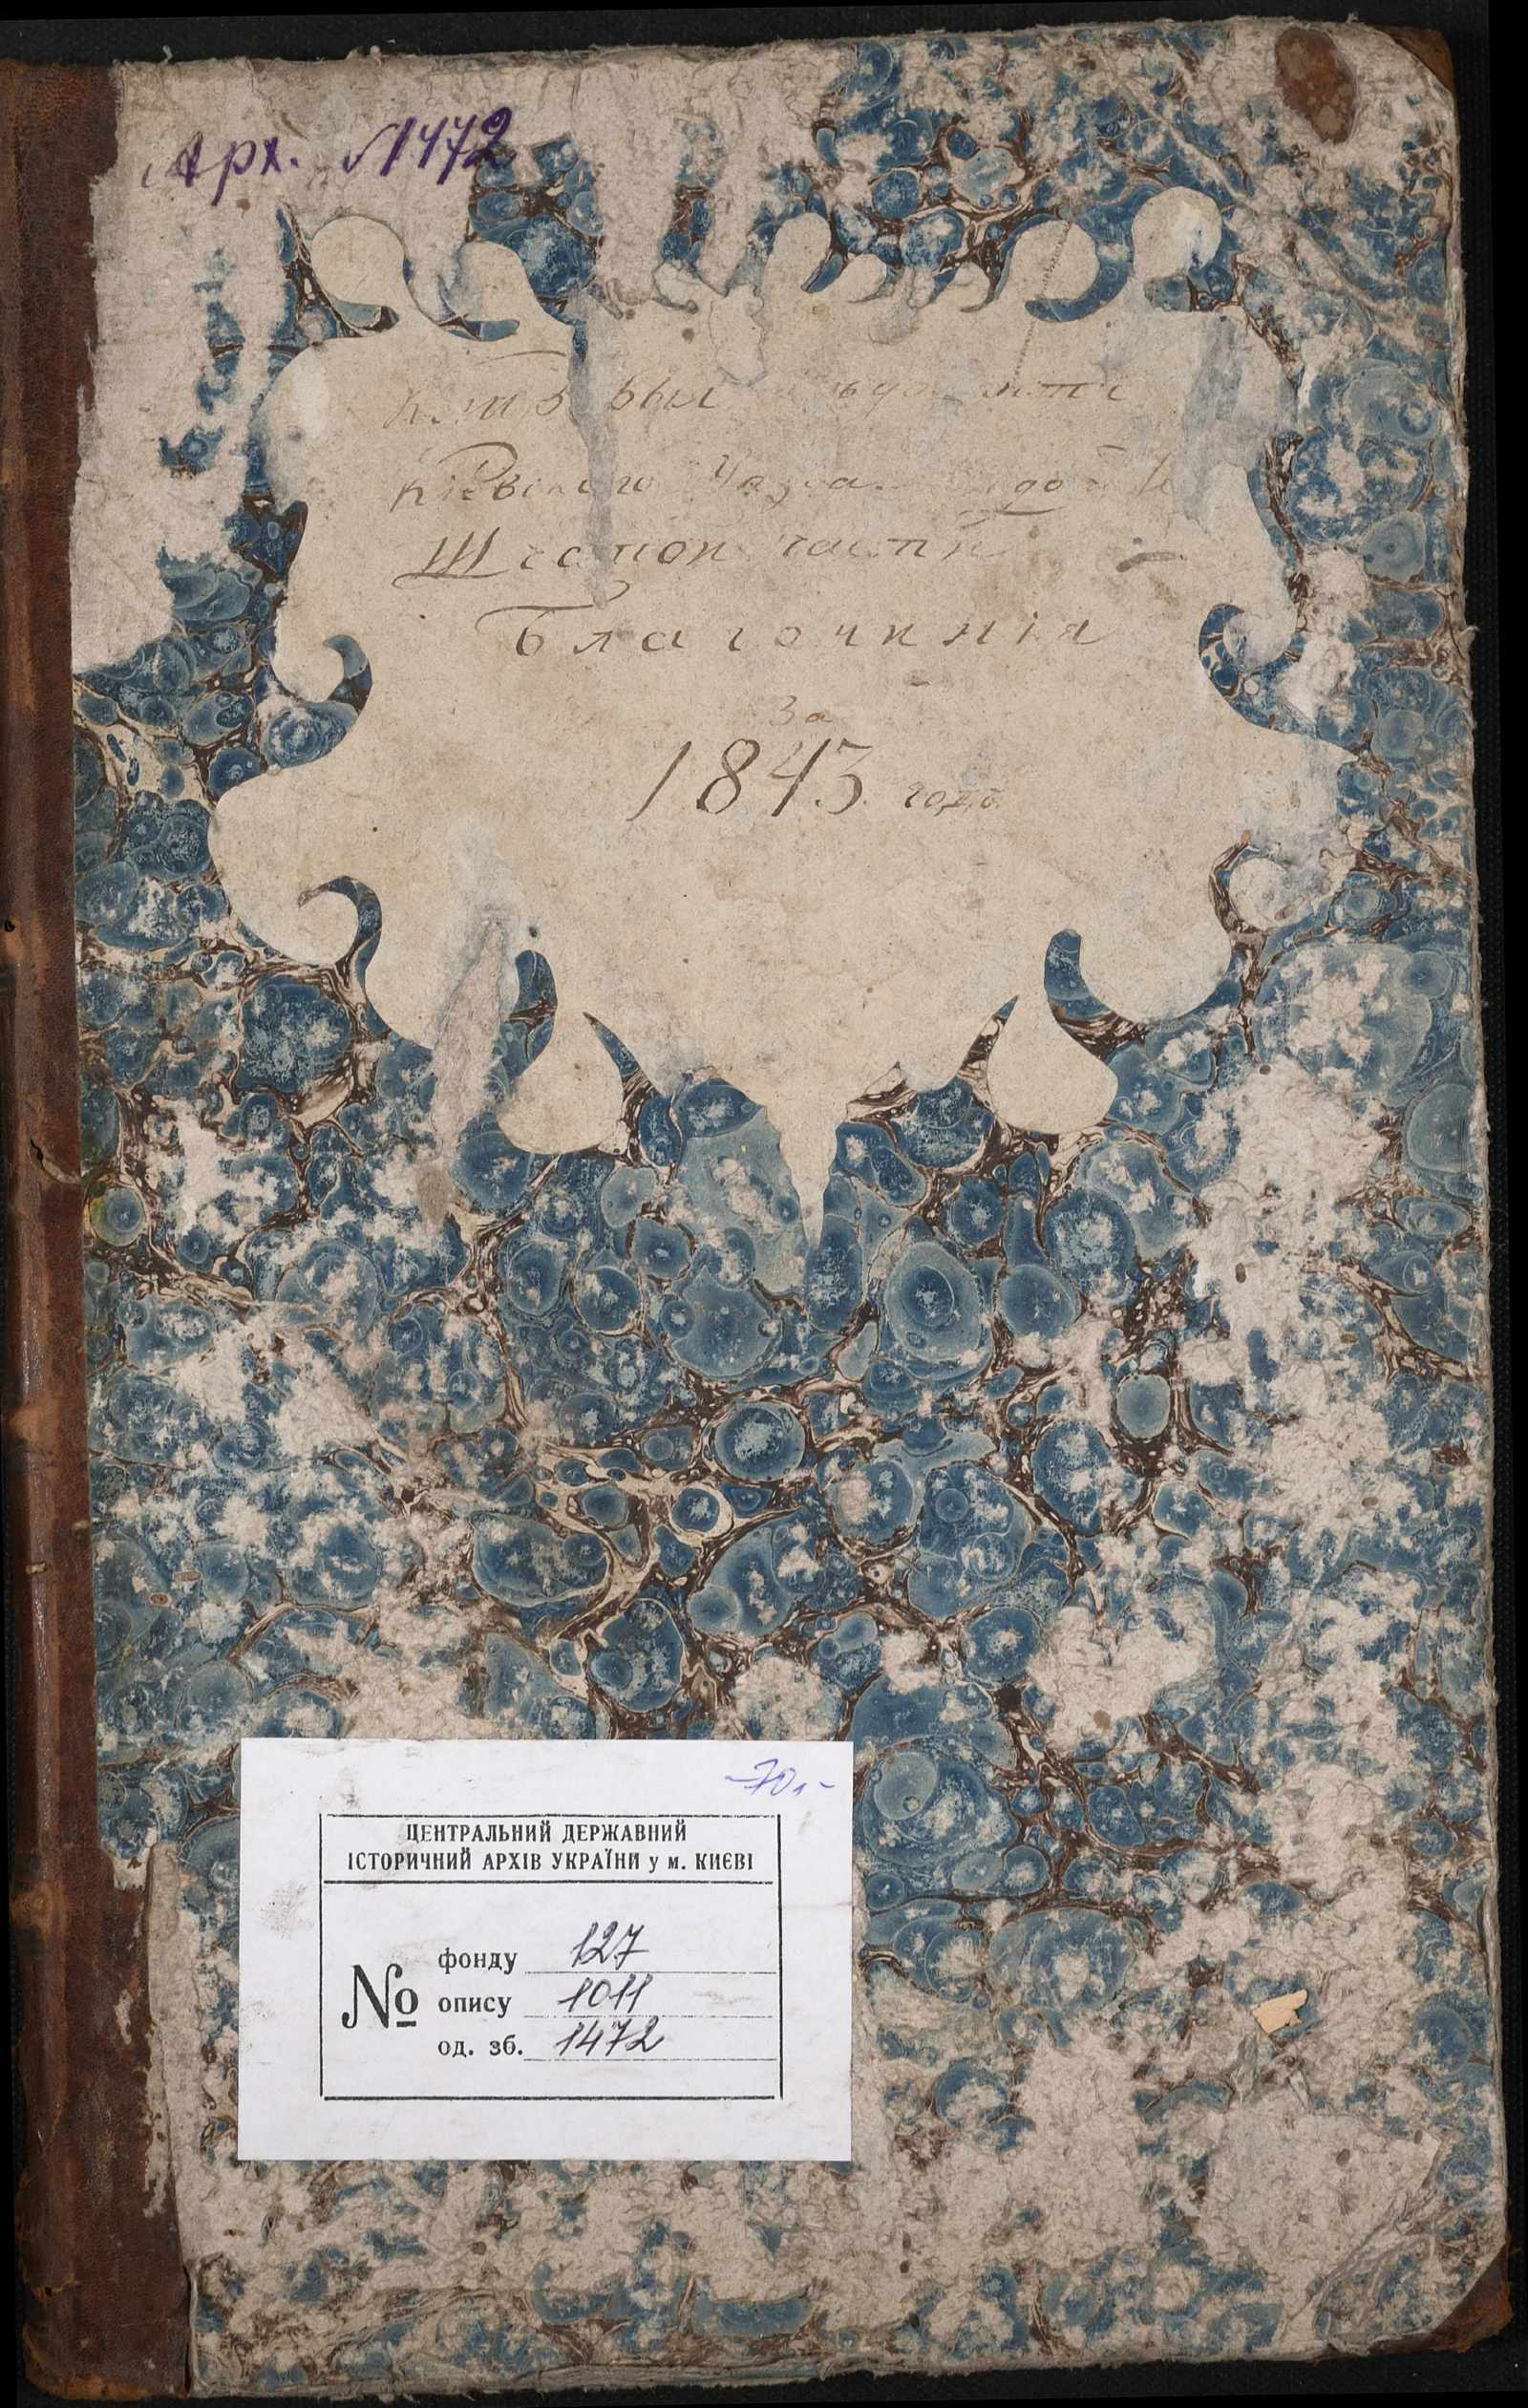 Арх. №1472
Кіевскаго Уѣзда
Шестой части
Благочинія
За
1843 годъ
-70л-
ЦЕНТРАЛЬНИЙ ДЕРЖАВНИЙ
ІСТОРИЧНИЙ АРХІВ УКРАЇНИ у м. КИЄВІ
№
фонду 127
опису 1011
од. зб. 1472